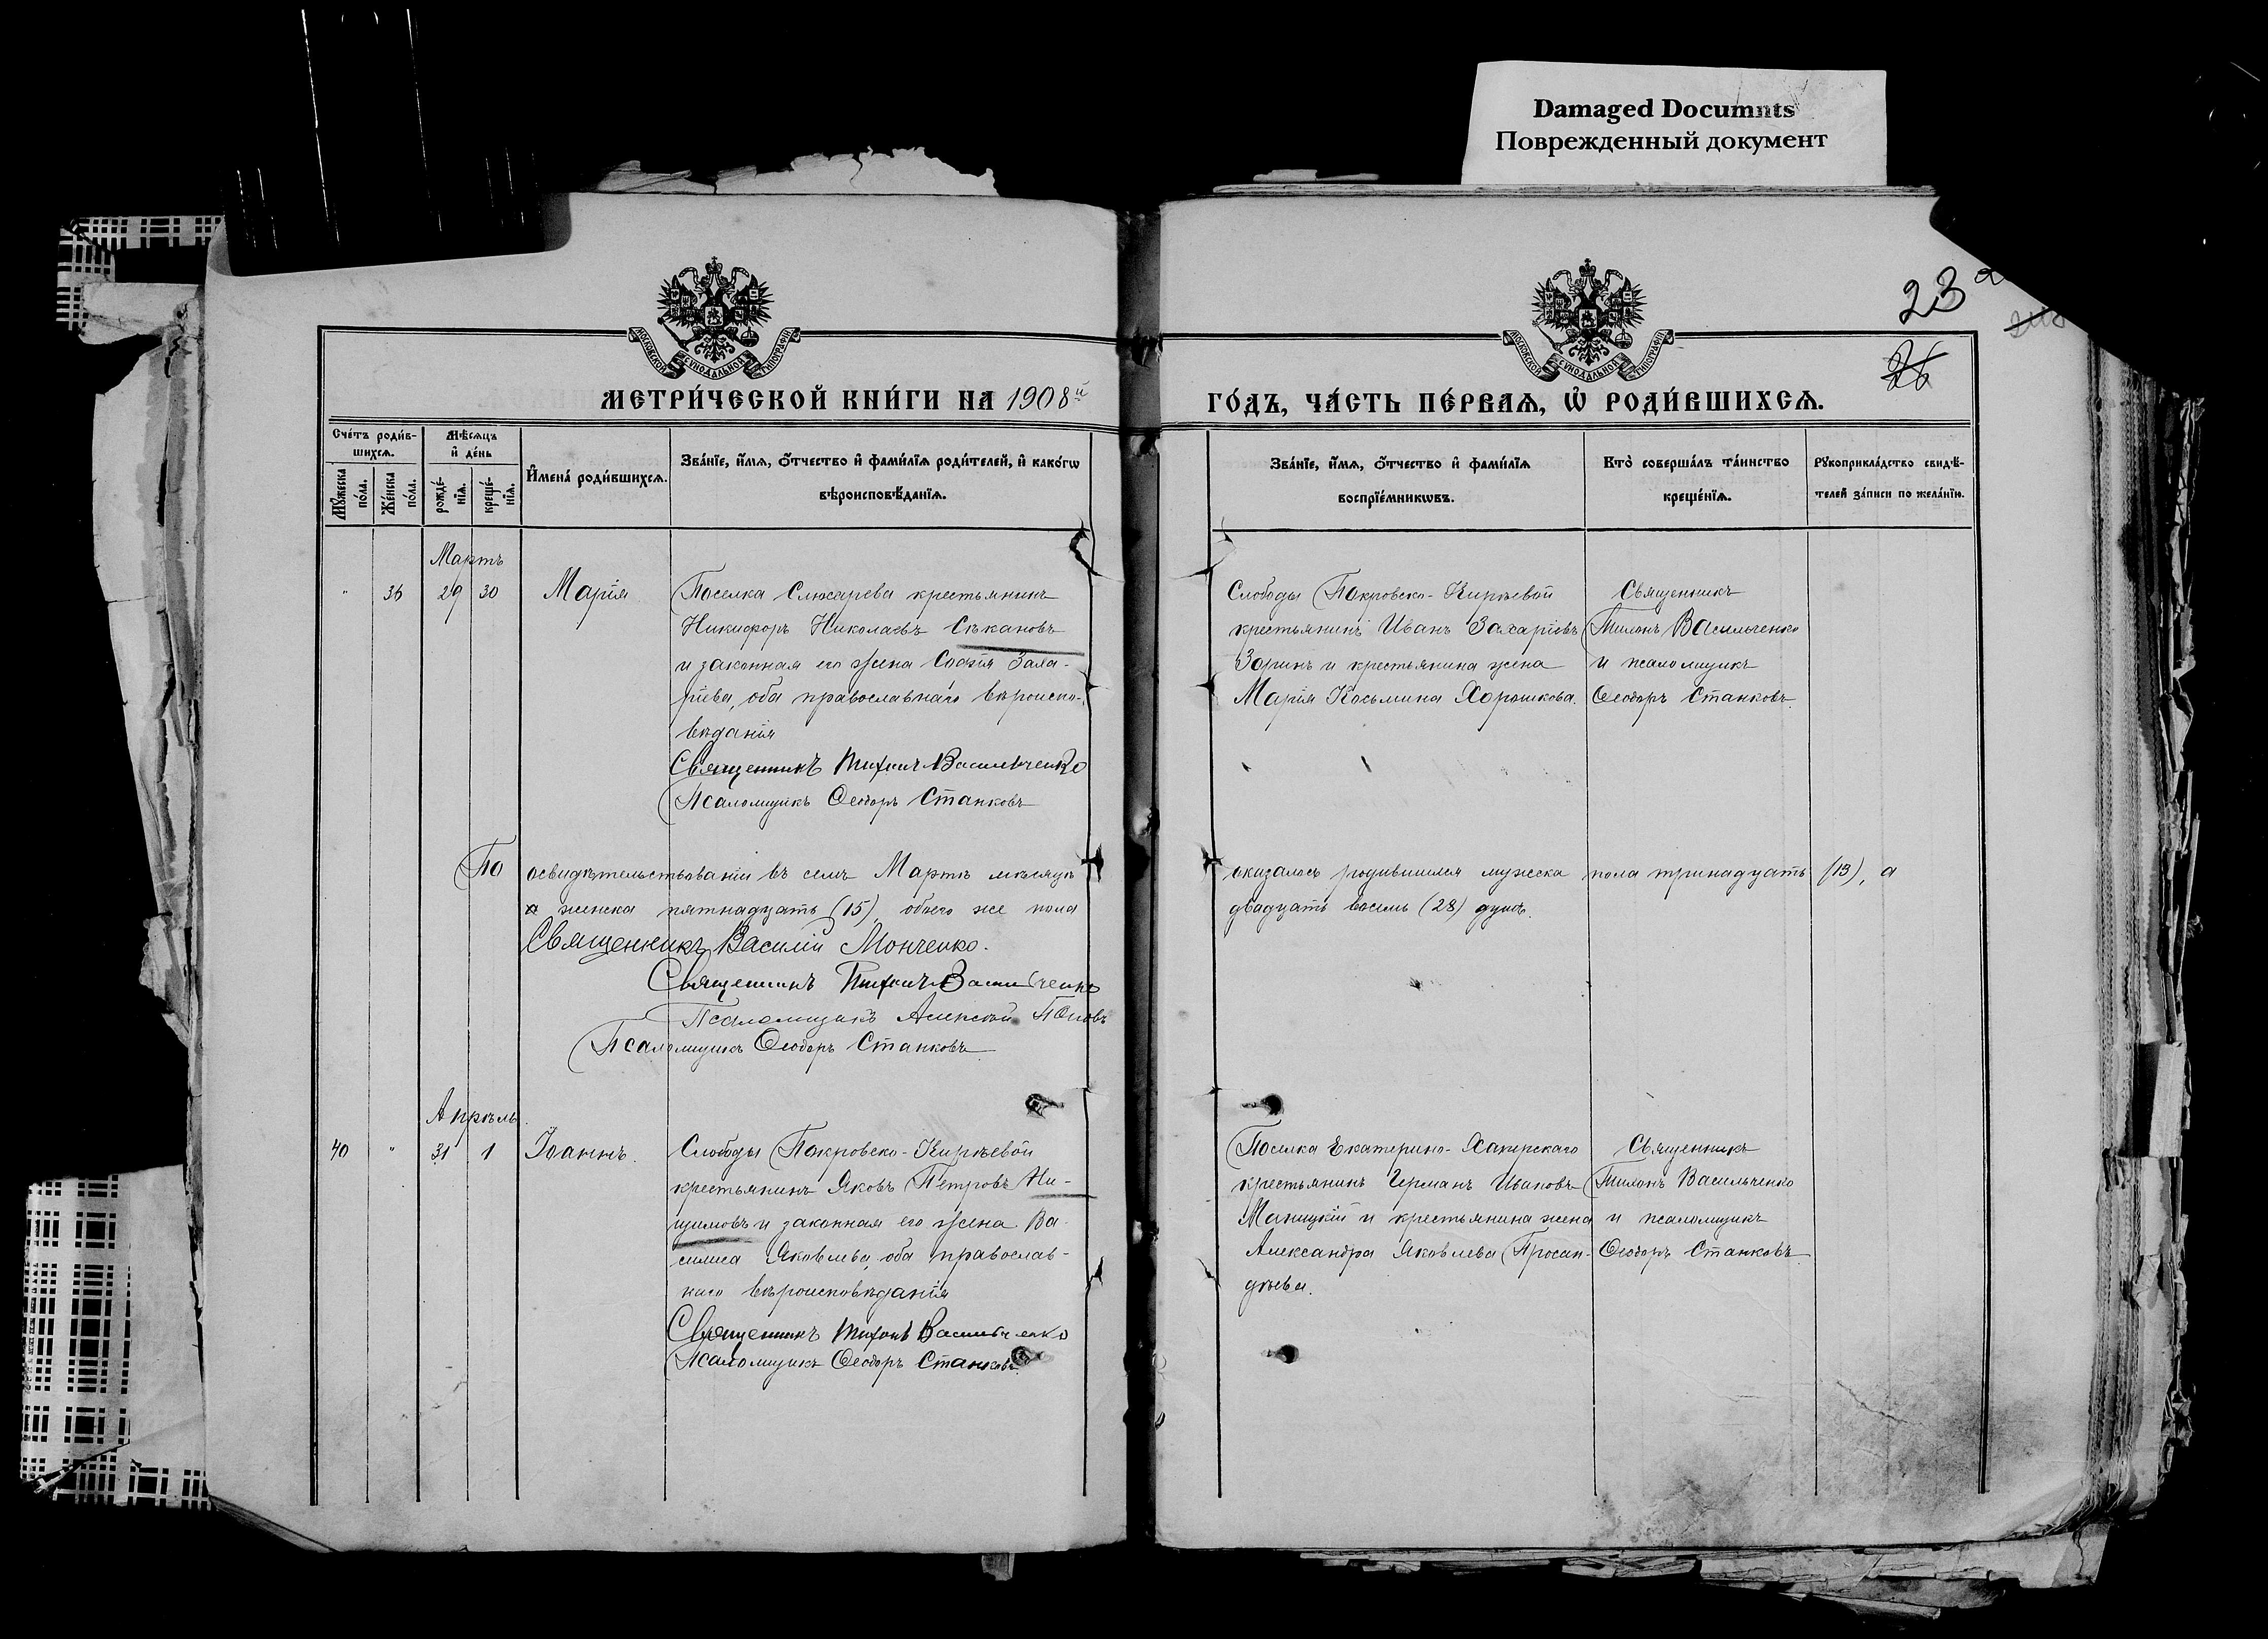 Damaged Documnts
Поврежденный документ
23
26
МОСКОВСКОЙ СѴНОДАЛЬНОЙ ТИПОГРАФІИ
МОСКОВСКОЙ СѴНОДАЛЬНОЙ ТИПОГРАФІИ
МЕТРИ́ЧЕСКОЙ КНИ́ГИ НА 1908й
ГО́ДЪ, ЧА́СТЬ ПЕ́РВАѦ, Ѡ҆ РОДИ́ВШИХСѦ.
Сче́тъ роди́в-
шихсѧ.
Мꙋ́жеска по́ла.
Же́нска по́ла.
Мѣ́сѧцъ
и҆ де́нь
рожде́-
нїѧ.
креще́-
нїѧ.
И҆мена̀ роди́вшихсѧ.
Зва́нїе, и҆́мѧ, ѻ҆́тчество и҆ фами́лїѧ роди́телей, и҆ како́гѡ
вѣроисповѣ́данїѧ.
Зва́нїе, и҆́мѧ, ѻ҆́тчество и҆ фами́лїѧ
воспрїе́мникѡвъ.
Кто̀ соверша́лъ та́инство
креще́нїѧ.
Рꙋкоприкла́дство свидѣ́-
телей за́писи по жела́нїю.
Мартъ
" 36 29 30 Марія
Поселка Слюсарева крестьянинъ
Никифоръ Николаевъ Сѣкановъ
и законная его жена Софія Заха-
ріева, оба православнаго вѣроиспо-
вѣданія
Священникъ Тихонъ Васильченко
Псаломщикъ Ѳеодоръ Станковъ
Слободы Покровско-Кирѣевой
крестьянинъ Иванъ Захаріевъ
Зоринъ и крестьянина жена
Марія Косьмина Хорошкова.
Священникъ
Тихонъ Васильченко
и псаломщикъ
Ѳеодоръ Станковъ.
По освидѣтельствованіи въ семъ Мартѣ мѣсяцѣ оказалось родившихся мужеска пола тринадцать (13), а
женска пятнадцать (15), обоего же пола двадцать восемь (28) душъ.
Священникъ Василій Монченко.
Священникъ Тихонъ Васильченко
Псаломщикъ Алексѣй Поповъ
Псаломщикъ Ѳеодоръ Станковъ
Апрѣль.
40 " 31 1 Іоаннъ.
Слободы Покровско-Кирѣевой
крестьянинъ Яковъ Петровъ Ни-
щимовъ и законная его жена Ва-
силиса Яковлева, оба православ-
наго вѣроисповѣданія
Священникъ Тихонъ Васильченко
Псаломщикъ Ѳеодоръ Станковъ.
Поселка Екатерино-Хапирскаго
крестьянинъ Германъ Ивановъ
Маницкій и крестьянина жена
Александра Яковлева Просан-
дѣева.
Священникъ
Тихонъ Васильченко
и псаломщикъ
Ѳеодоръ Станковъ.